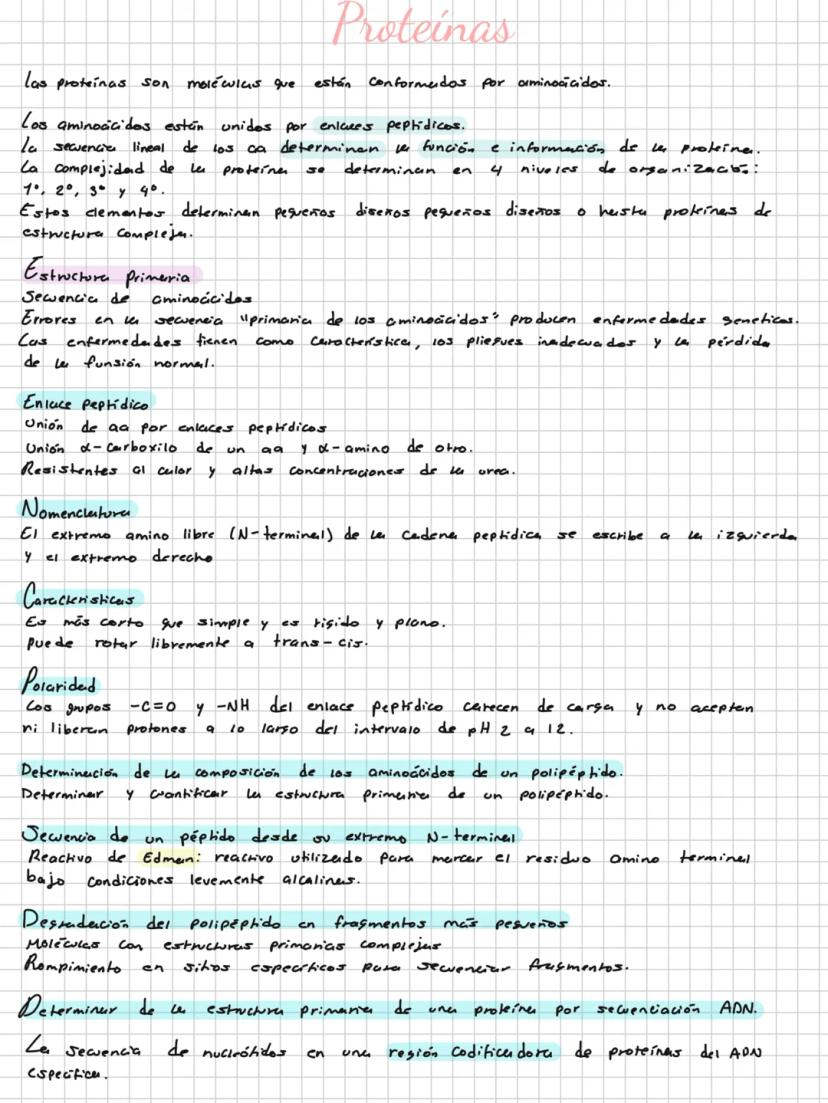 Proteínas
Las proteínas son moléculas que están conformados por aminoácidos.
Los aminoácidos están unidos por enlaces peptídicos.
la secuencia lineal de los aa determinan la función e información de la proteína.
La complejidad de la proteína se determinan en 4 niveles de organización:
1°, 2°, 3° y 4°.
Estos elementos determinan pequeños diseños pequeños diseños o hasta proteínas de
estructura compleja.
Estructura primaria
Secuencia de aminoácidos
Errores en la secuencia "primaria de los aminoácidos" producen enfermedades geneticas.
Las enfermedades tienen como característica, los pliegues inadecuados y la pérdida
de la funsión normal.
Enlace peptídico
Unión de aa por enlaces peptídicos
Unión α-carboxilo de un aa y α-amino de otro.
Resistentes al calor y altas concentraciones de la urea.
Nomenclatura
El extremo amino libre (N-terminal) de la cadena peptidica se escribe a la izquierda
y el extremo derecho
Caracteristicas
Es más corto que simple y es rigido y plano.
puede rotar libremente a trans-cis.
Polaridad
Los grupos -C=O y -NH del enlace peptídico carecen de carga y no aceptan
ni liberan protones a lo largo del intervalo de pH 2 a 12.
Determinación de la composición de los aminoácidos de un polipéptido.
Determinar y cuantificar la estructura primaria de un polipéptido.
Secuencia de un péptido desde su extremo N-terminal
Reactivo de Edman: reactivo utilizado para marcar el residuo amino terminal
bajo condiciones levemente alcalinas.
Degradación del polipéptido en fragmentos más pequeños
Moléculas con estructuras primarias complejas
Rompimiento en sitios específicos para secuenciar fragmentos.
Determinar de la estructura primaria de una proteína por secuenciación ADN.
La secuencia de nucleótidos en una región codificadora de proteínas del ADN
especifica.